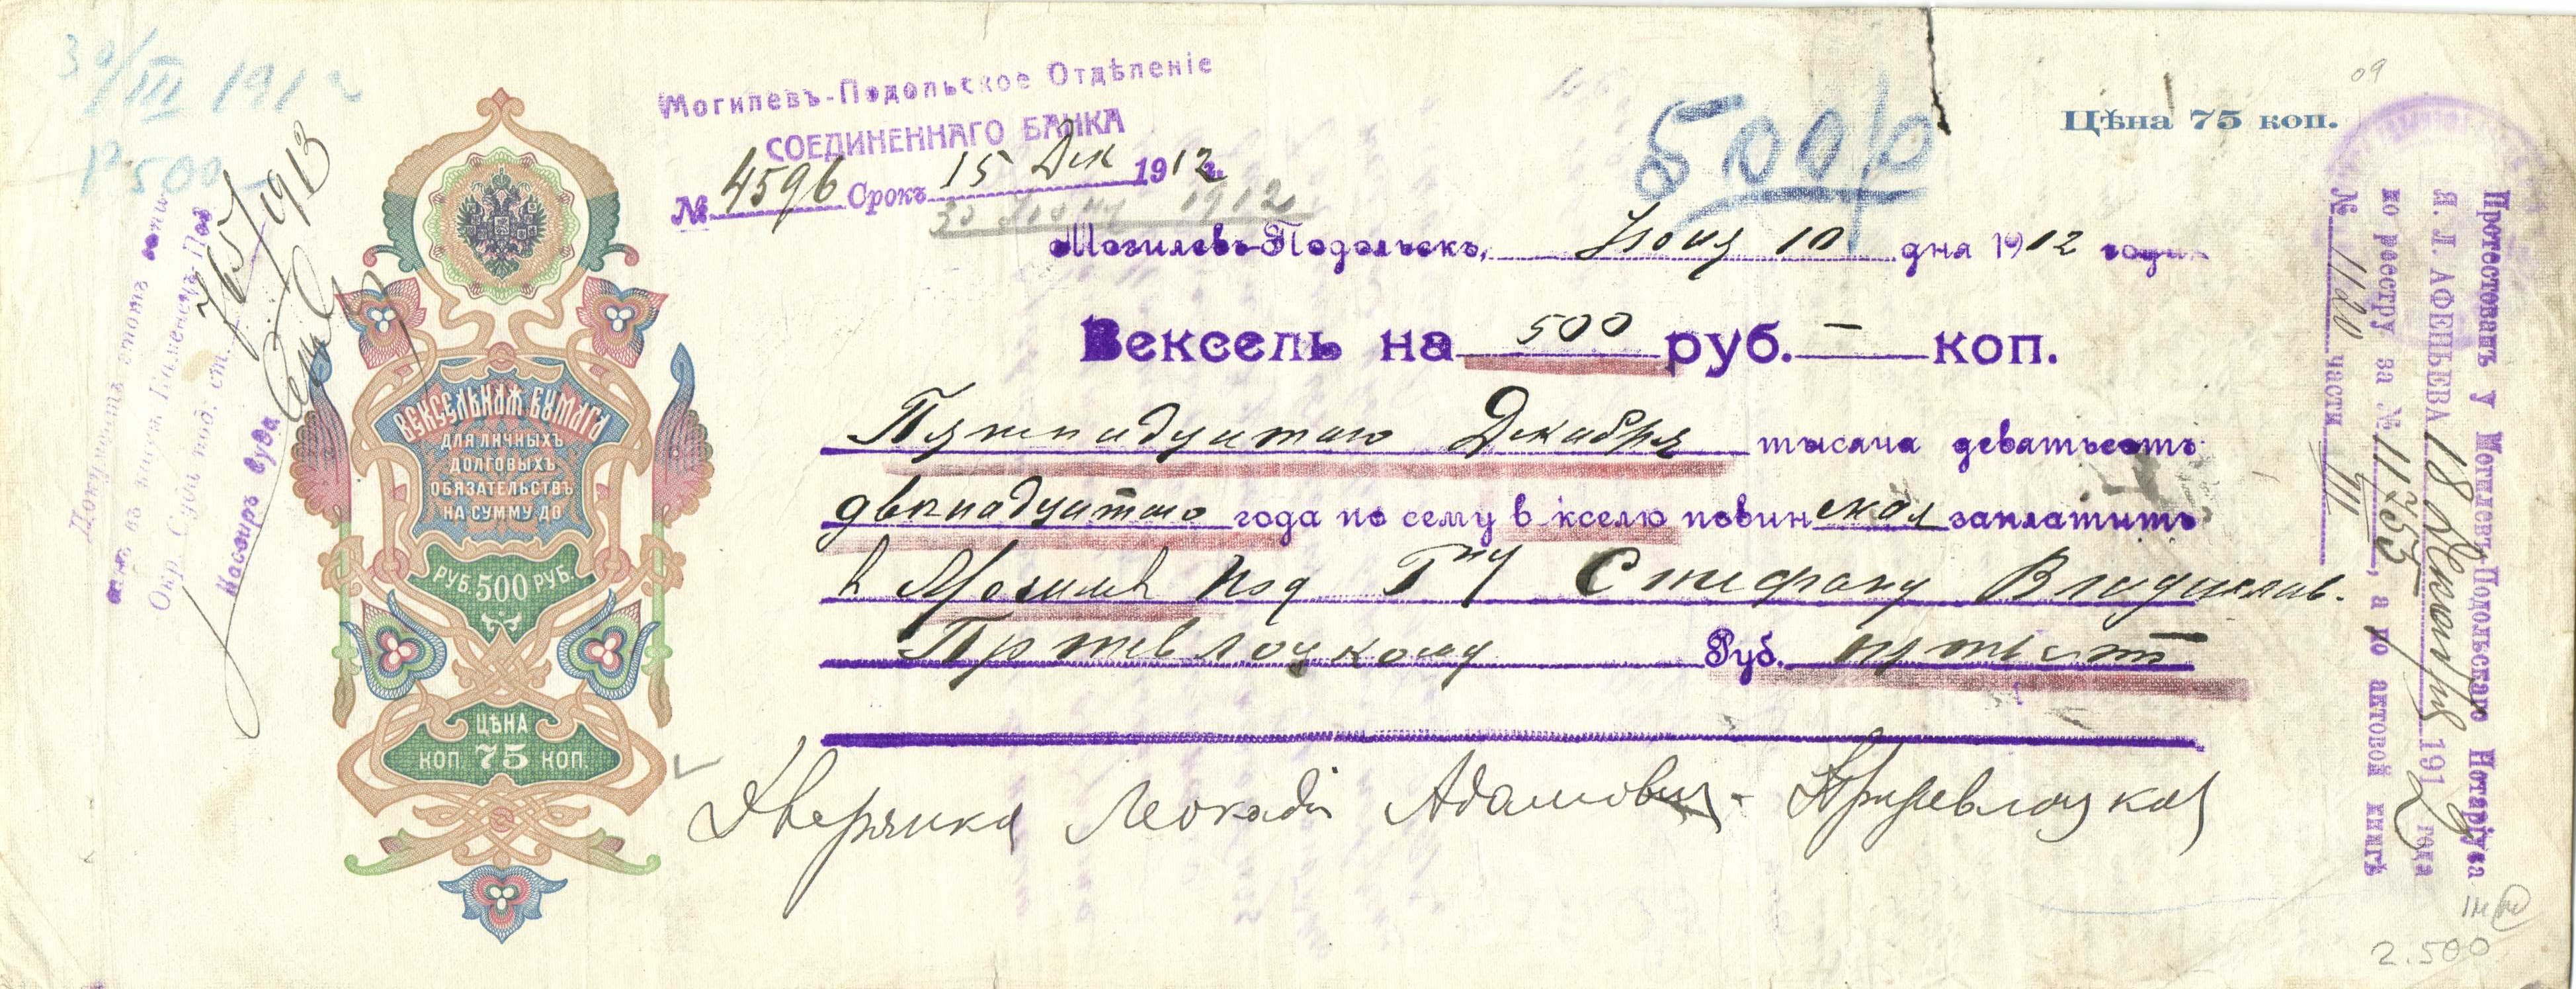 30/III 1912
Р 500
Могилевъ-Подольское Отдѣленіе
СОЕДИНЕННАГО БАНКА
№ 4596 Срокъ 15 Дек 1912 г.
1912
500
Цѣна 75 коп.
09
Могилевъ-Подольскъ, Іюня 10 дня 1912 года
Вексель на 500 руб. — коп.
Пятнадцатаго Декабря тысяча девятьсотъ
двѣнадцатаго года по сему векселю повинская заплатить
въ Могилевѣ Под Гну Стефану Владислав.
Пржевлоцкому Руб. пятьсот
Дворянка Леокадія Адамовна Пржевлоцкая
ВЕКСЕЛЬНАЯ БУМАГА
ДЛЯ ЛИЧНЫХЪ
ДОЛГОВЫХЪ
ОБЯЗАТЕЛЬСТВЪ
НА СУММУ ДО
РУБ. 500 РУБ.
ЦѢНА
КОП. 75 КОП.
Документъ этотъ
въ Каменецъ-Под
Окр. Судъ под. ст. 765/1913
Кассиръ Суда
Протестованъ у Могилевъ-Подольскаго Нотаріуса
Я. Л. АФЕНЬЕВА 18 Декабря 1912 года
по реестру за № 11255, а по актовой книгѣ
№ 1120 части III
2.500